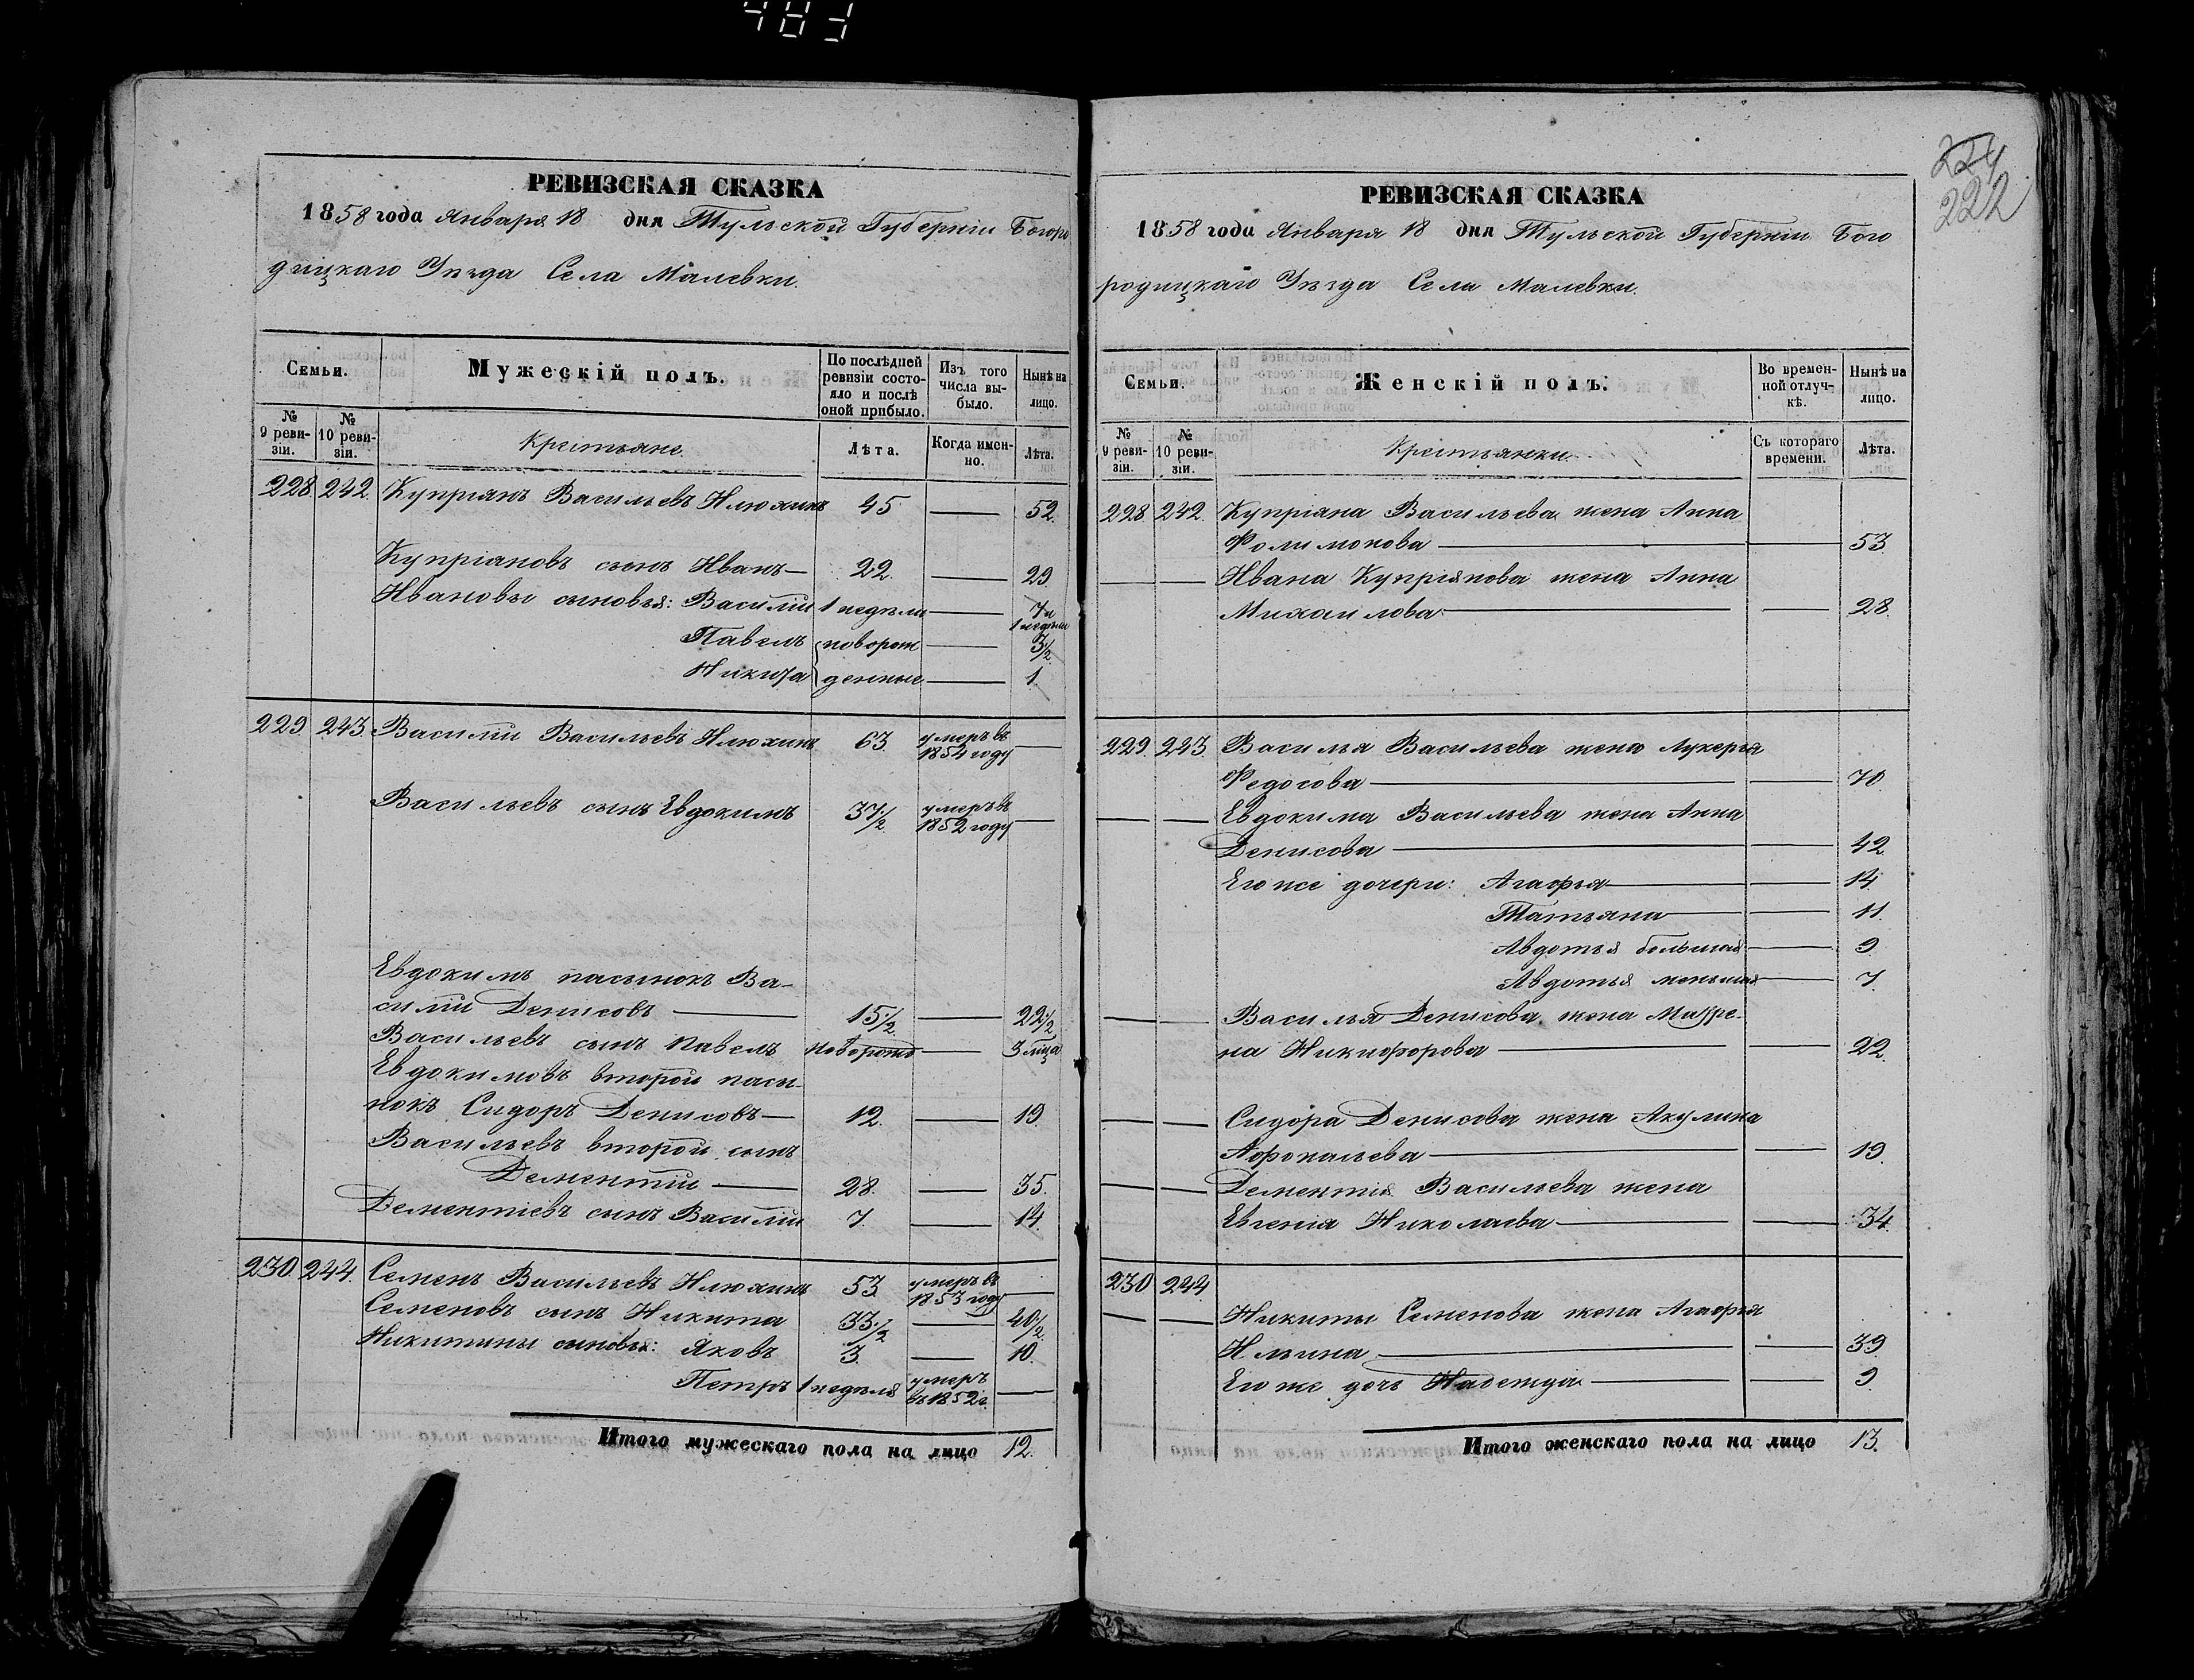 483
РЕВИЗСКАЯ СКАЗКА
1858 года Января 18 дня Тульской Губерніи Богоро
дицкаго Уѣзда Села Малевки.
Семьи.
Мужескій полъ.
По послѣдней ревизіи состояло и послѣ оной прибыло.
Изъ того числа выбыло.
Нынѣ на лицо.
№ 9 ревизіи.
№ 10 ревизіи.
Крестьяне.
Лѣта.
Когда именно.
Лѣта.
228 242. Купріянъ Васильевъ Илюхинъ 45 — 52.
Купріяновъ сынъ Иванъ — 22. — 29
Ивановы сыновья: Василій 1 недѣли — 7 и 1 недѣли
Павелъ новорож — 3½
Никита денные — 1.
229 243. Василій Васильевъ Илюхинъ 63. умеръ въ 1854 году —
Васильевъ сынъ Евдокимъ 37½ умеръ въ 1852 году —
Евдокимъ пасынокъ Ва-
силій Денисовъ — 15½ — 22½
Васильевъ сынъ Павелъ новорож — 3 мца
Евдокимовъ второй пасы-
нокъ Сидоръ Денисовъ — 12. — 19.
Васильевъ второй сынъ
Дементій — 28. — 35.
Дементіевъ сынъ Василій 7. — 14.
230. 244. Семенъ Васильевъ Илюхинъ 53. умеръ въ 1853 году —
Семеновъ сынъ Никита 33½ — 40½
Никитины сыновья: Яковъ 3. — 10.
Петръ 1 недѣля умеръ въ 1852 г. —
Итого мужескаго пола на лицо 12.
224
222
РЕВИЗСКАЯ СКАЗКА
1858 года Января 18 дня Тульской Губерніи Бого
родицкаго Уѣзда Села Малевки.
Семьи.
Женскій полъ.
Во временной отлучкѣ.
Нынѣ на лицо.
№ 9 ревизіи.
№ 10 ревизіи.
Крестьянки.
Съ котораго времени.
Лѣта.
228 242. Купріяна Васильева жена Анна
Фолимонова — — 53
— — Ивана Купріянова жена Анна
Михаилова — — 28.
229. 243. Василья Васильева жена Лукерья
Федосова — — 70.
— — Евдокима Васильева жена Анна
Денисова — — 42.
Его же дочери: Агафья — — 14.
Татьяна — — 11.
Авдотья большая — 9
Авдотья меньшая — 7.
— — Василья Денисова жена Матре-
на Никифорова — — 22.
— — Сидора Денисова жена Акулина
Афональева — — 19.
— — Дементія Васильева жена
Евгенія Николаева — — 34.
230 244
— — Никиты Семенова жена Агафья
Ильина — — 39.
Его же дочь Надежда — — 9.
Итого женскаго пола на лицо 13.